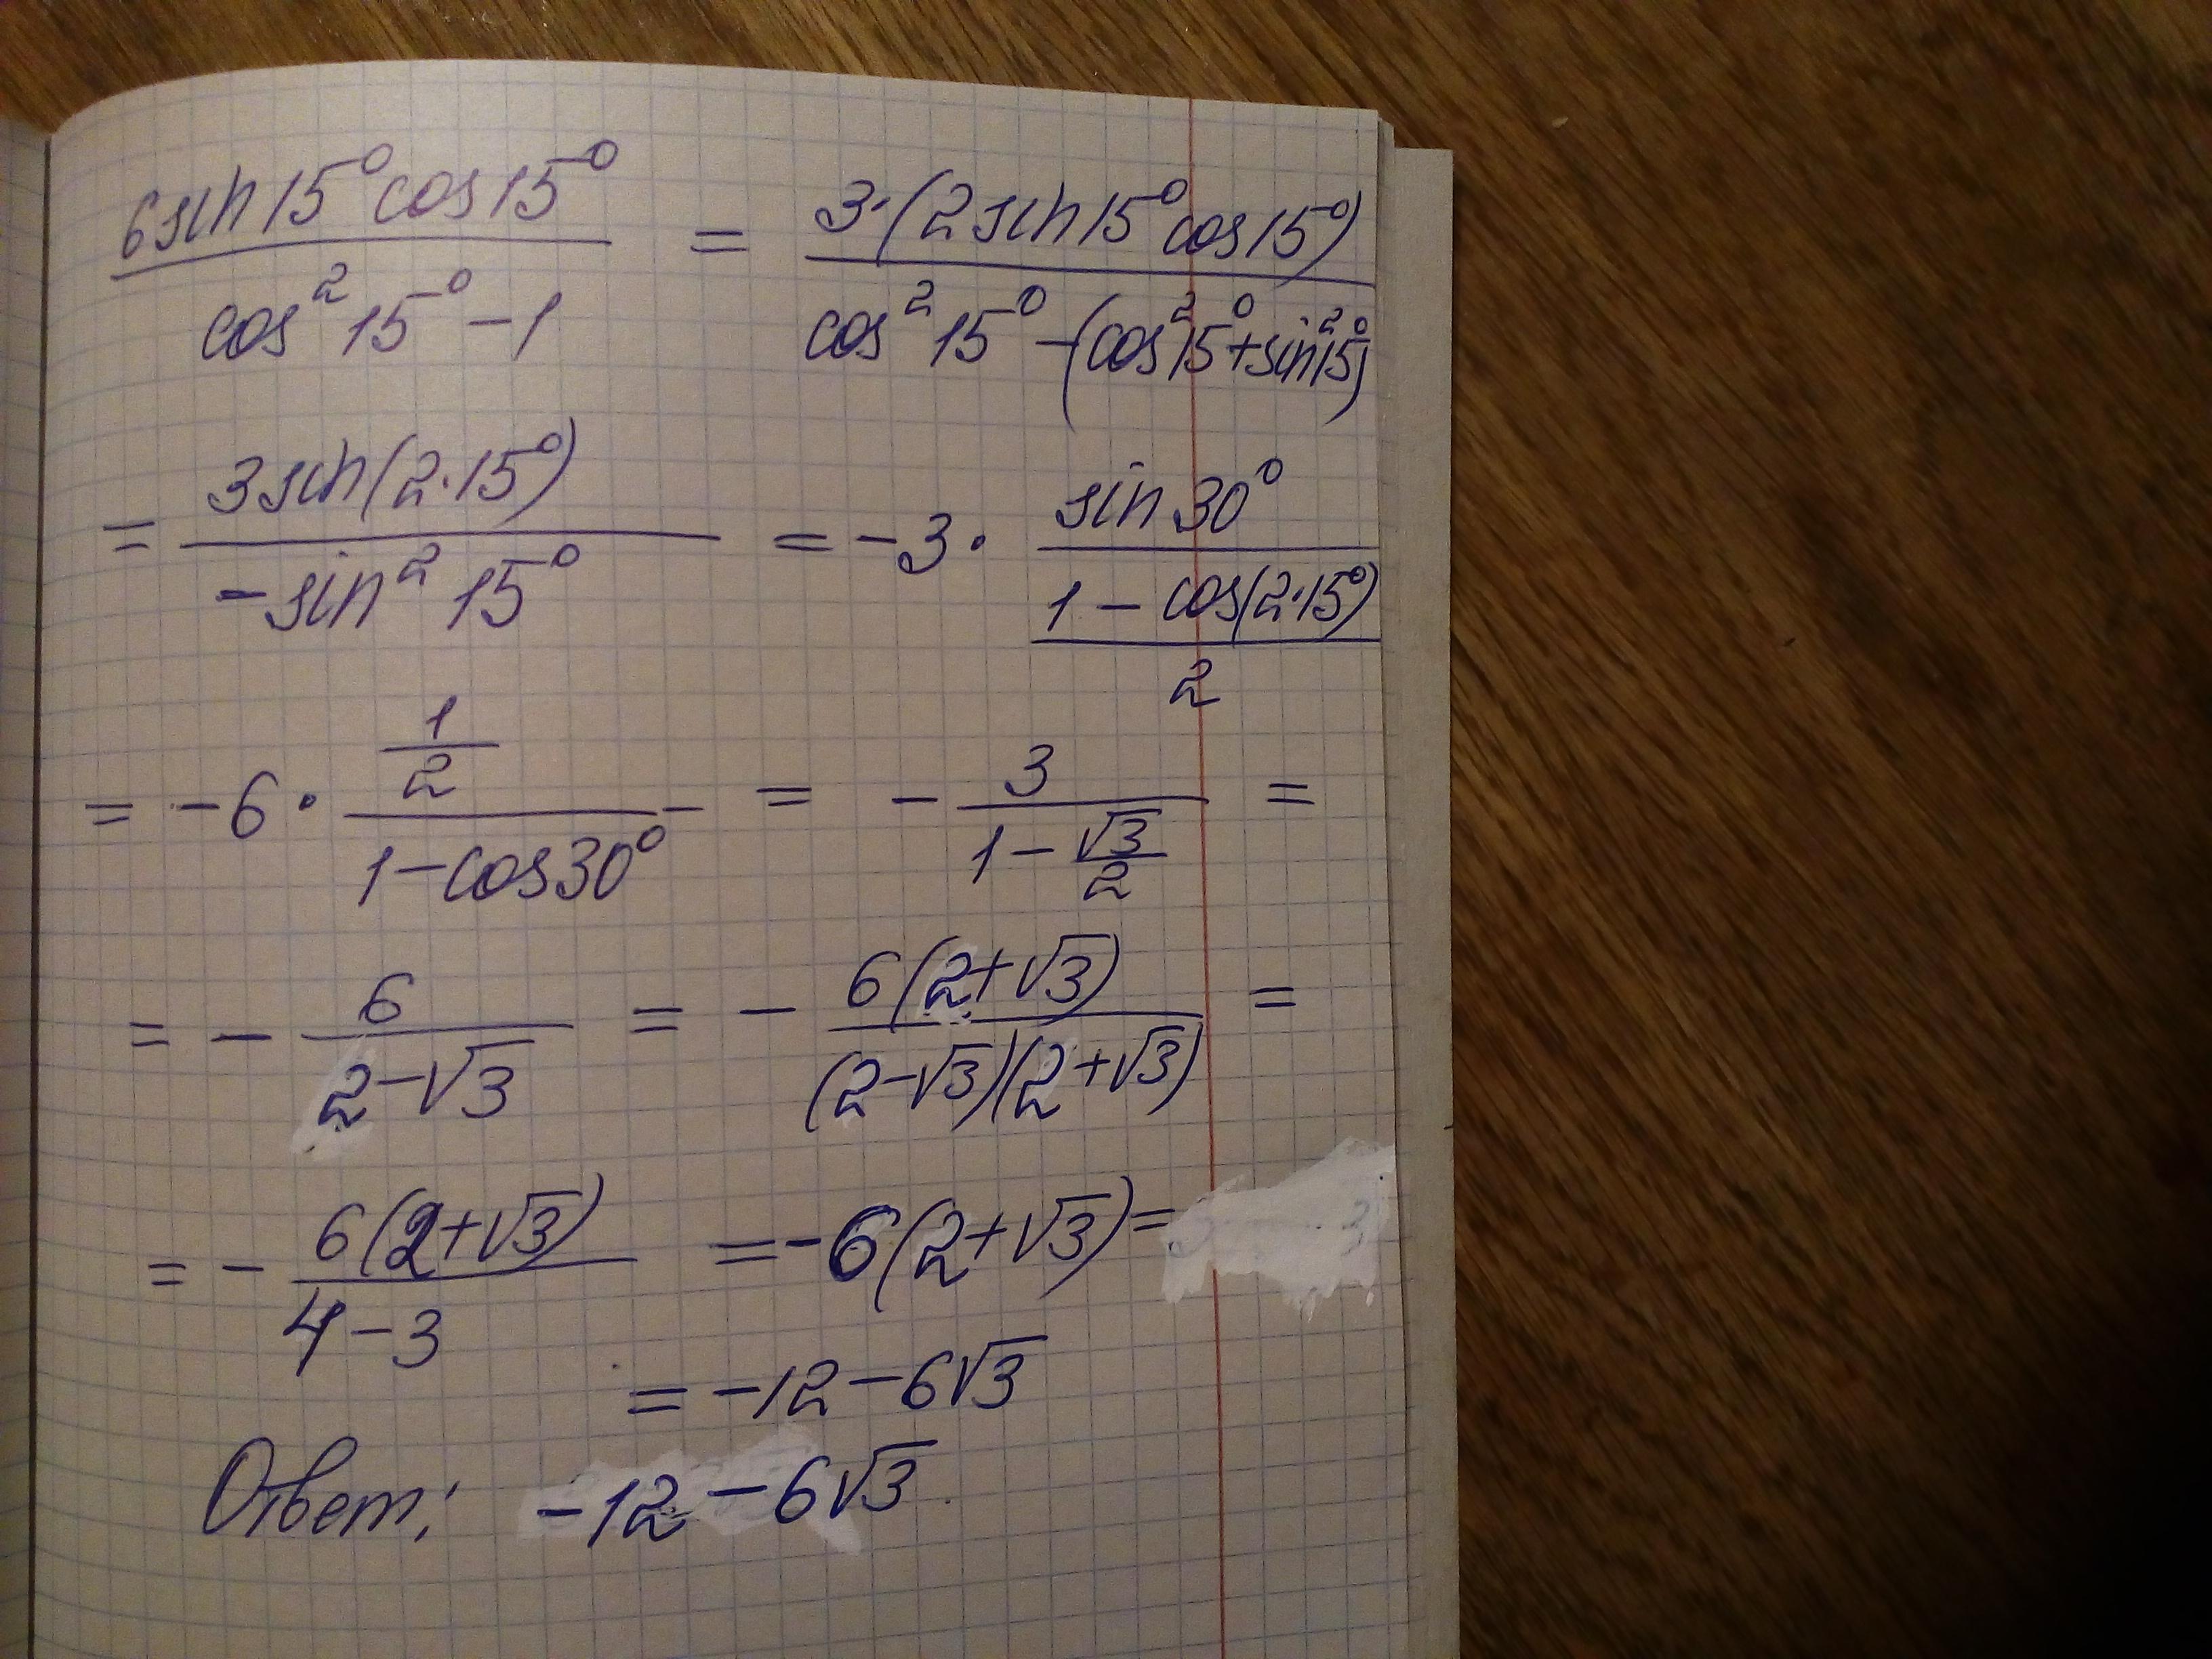 6sin15°cos15° / cos²15° − 1 = 3·(2sin15°cos15°) / cos²15° − (cos²15° + sin²15°)
= 3sin(2·15°) / −sin²15° = −3 · sin30° / (1 − cos(2·15°) / 2)
= −6 · (1/2) / 1 − cos30° = − 3 / (1 − √3/2) =
= − 6 / 2 − √3 = − 6(2+√3) / (2−√3)(2+√3) =
= − 6(2+√3) / 4 − 3 = −6(2+√3) =
= −12 − 6√3
Ответ: −12 − 6√3.